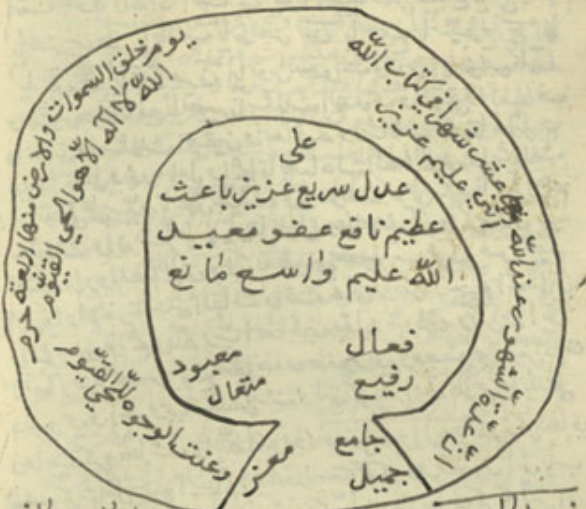 ان عدة الشهور عند الله اثنى عشر شهرا في كتاب الله
اني عليم عزيز
يوم خلق السموات والارض منها اربعة حرم
الله لا اله الا هو الحي القيوم
وعنت الوجوه للحي القيوم
على
عدل سريع عزيز باعث
عظيم نافع عفو معيد
الله عليم واسع مانع
فعال معبود
رفيع متعال
جامع معز
جميل